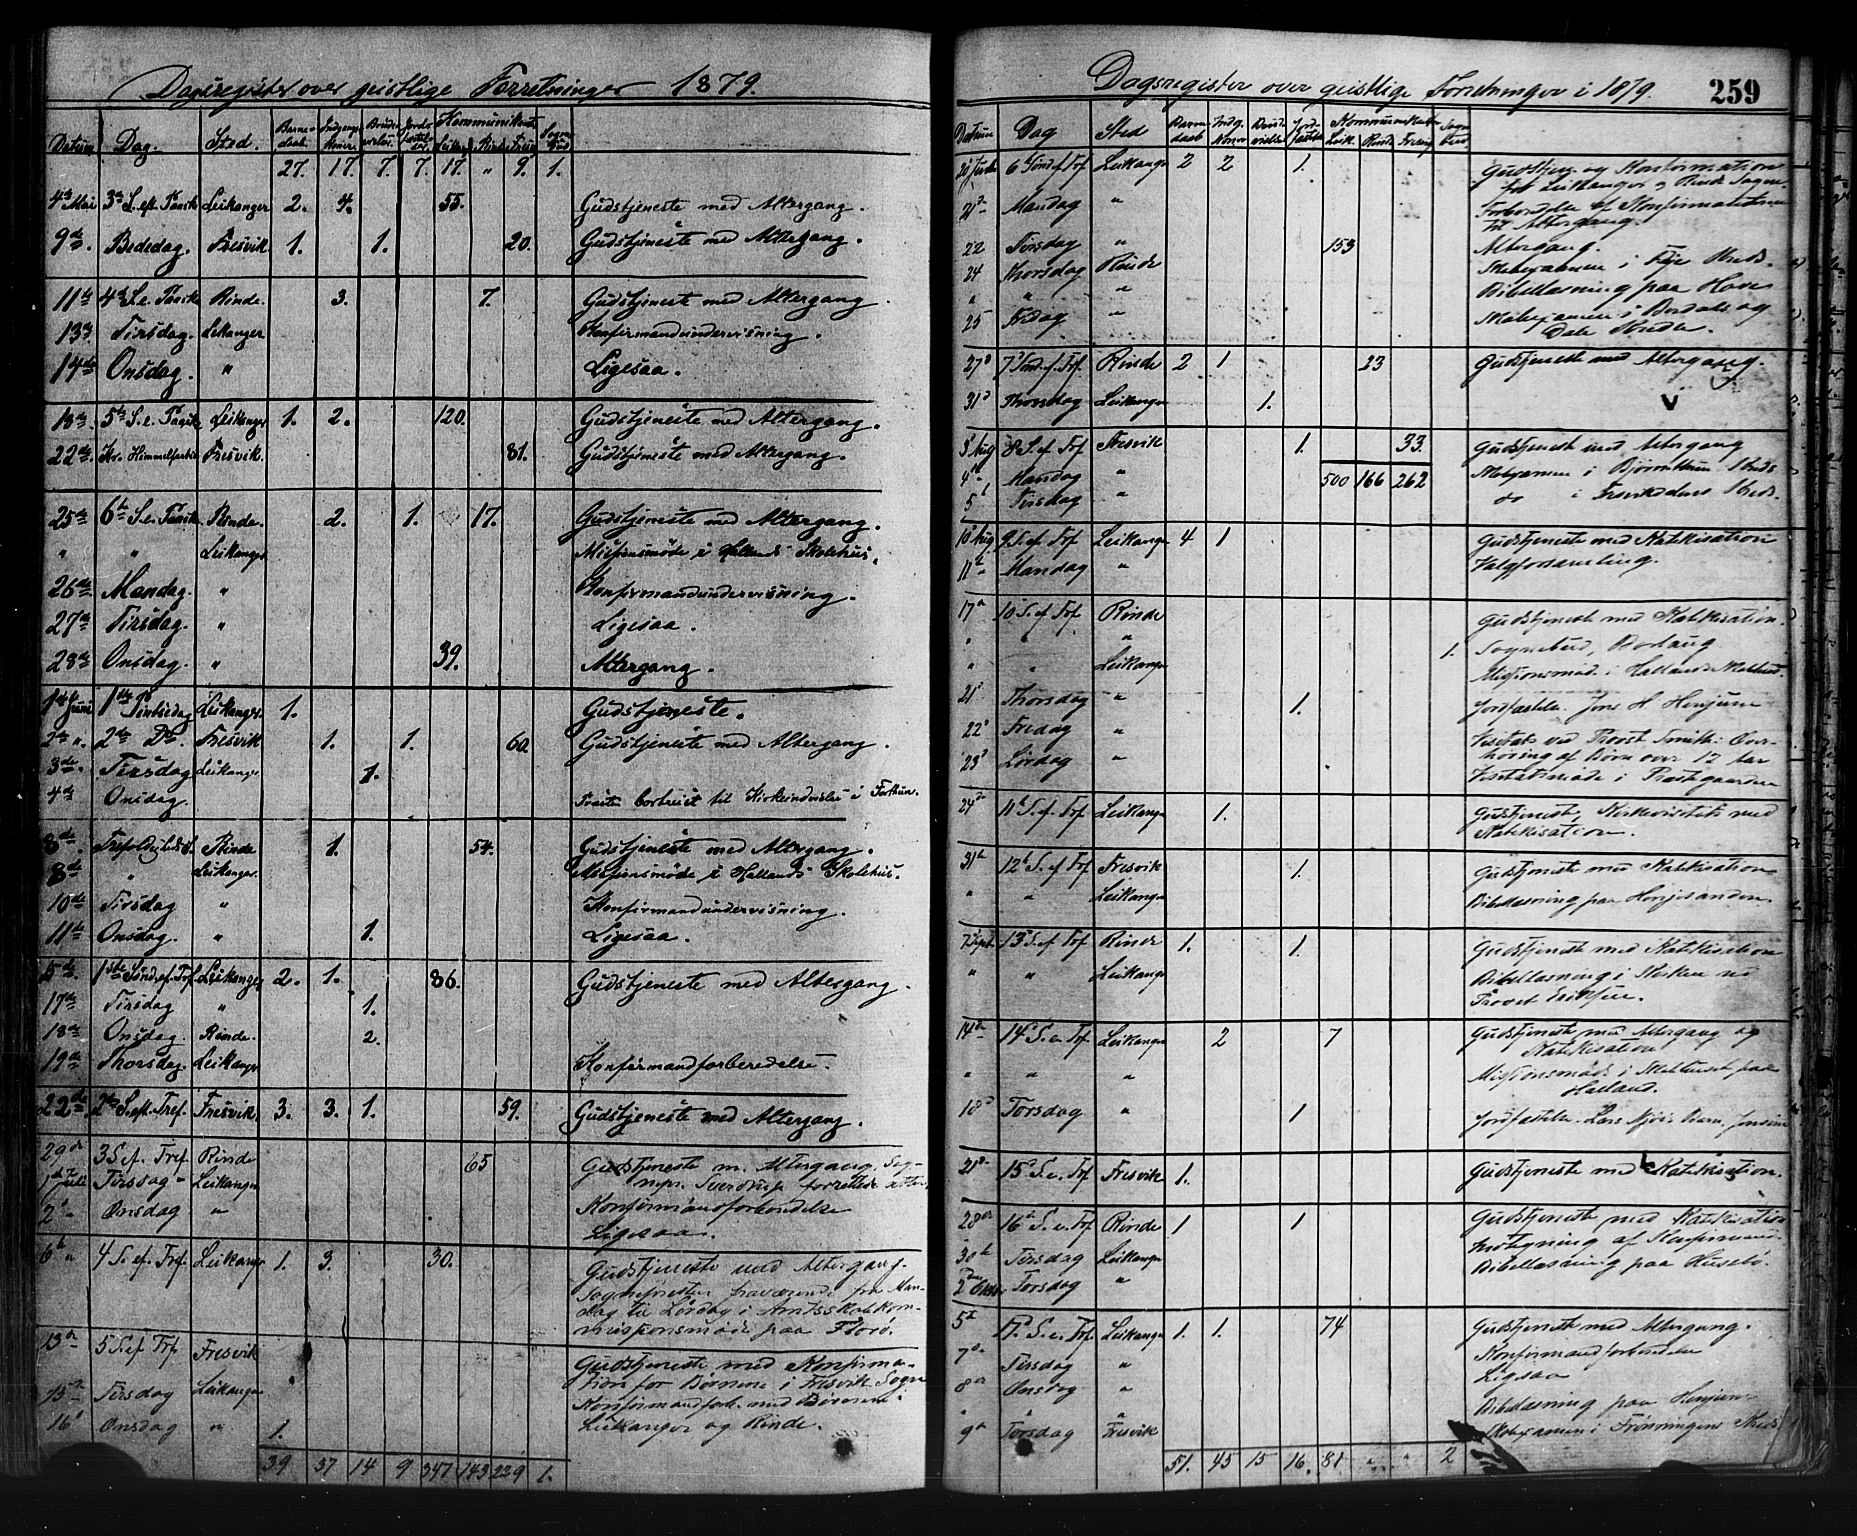 Dagsregister over geistlige Forretninger 1879.
Datum. Dag. Sted. Barnedaab. Indgangskoner. Brudevielser. Jordfæstelser. Kommunikanter Leik. Rinde Fresv. Sognebud
27. 17. 7. 7. 17. " 9. 1.
4de Mai 3die S. eft. Paaske Leikanger 2. 4. 55. Gudstjeneste med Altergang.
9de. Bededag. Fresvik 1. 1. 20. Gudstjeneste med Altergang.
11te 4de S. e. Paaske Rinde. 3. 7. Gudstjeneste med Altergang
13de Tirsdag. Leikanger Konfirmandundervisning.
14de Onsdag. " Ligesaa.
18de 5te S. e. Paaske Leikanger 1. 2. 120. Gudstjeneste med Altergang.
22de Kr. Himmelfartsd. Fresvik. 81. Gudstjeneste med Altergang.
25de 6te S. e. Paaske Rinde. 2. 1. 17. Gudstjeneste med Altergang.
" " Leikanger Missionsmøde i Hallands Skolehus.
26de Mandag. " Konfirmandundervisning.
27de Tirsdag. " Ligesaa.
28de Onsdag. " 39. Altergang.
1ste Juni 1ste Pintsedag Leikanger. 1. Gudstjeneste.
2den ". 2den Do. Fresvik 1. 1. 60. Gudstjeneste med Altergang.
3die. Tirsdag Leikanger. 1.
4de Onsdag. Præsten bortreist til Kirkeindvielse i Forthun.
8de. Trefoldigheds S. Rinde 1. 54. Gudstjeneste med Altergang.
8de " Leikanger. Missionsmøde i Hallands Skolehus.
10de Tirsdag " Konfirmandundervisning.
11te Onsdag. " 1. Ligesaa.
15de. 1ste Sønd. ef. Tref. Leikanger 2. 1. 86. Gudstjeneste med Altergang.
17de Tirsdag " 1.
18de Onsdag. Rinde. 2.
19de Thorsdag. Leikanger Konfirmandforberedelse.
22de 2den S. eft. Tref. Fresvik. 3. 3. 1. 59. Gudstjeneste med Altergang.
29de 3 S. ef. Tref. Rinde 65 Gudstjeneste m. Altergang. Sogne-
1ste Juli Tirsdag Leikanger forrettede
2den Onsdag " Konfirmandforberedelse
Ligesaa.
6te " 4 S. ef. Tref. Leikanger 1. 3. 30. Gudstjeneste med Altergang.
Sognepresten fraværende fra Man-
dag til Lørdag i Amtsskolekom-
missionsmøde paa Florø.
13de 5 S. ef Trf Fresvik Gudstjeneste med Konfirma-
tion for Børnene i Fresvik Sogn
15de Tirsdag Leikanger Konfirmandforb. med Børnene i
16de Onsdag " 1. Leikanger og Rinde.
39 37 14 9 347 143 229 1.
Dagsregister over geistlige Forretninger i 1879. 259
Datum Dag Sted Barnedaab Indg. Koner Brudevielse Jordfæstelse Kommunikanter Leik. Rinde Fresvig Sognebud
20 Juli 6 Sønd. f. Trf. Leikanger 2 2 1. Gudstjen. og Konfirmation
for Leikanger og Rinde Sogne.
21de Mandag " Forberedelse af Konfirmanterne
til Altergang.
22 Tirsdag " 153 Altergang.
24 Thorsdag Rinde Skoleexamen i Feje Kreds.
" " " Bibellæsning paa Hove
25 Fredag " Skoleexamen i Bosdals og
Dale Kredse.
27de 7 Sønd. ef. Trf. Rinde 2 1 23 Gudstjeneste med Altergang.
31te Thorsdag Leikanger 1. V
3 Aug 8 S. ef Trf Fresvik 1. 33. Gudstjeneste med Altergang
4de Mandag " 500 166 262 Skoleexamen i Kreds
5te Tirsdag " do i Kreds.
10 Aug. 9 S. ef Trf Leikanger 4 1 Gudstjeneste med Katekisation
11te Mandag " Valgforsamling.
17de 10 S. ef Trf Rinde Gudstjeneste med Katekisation.
" " " 1. Sognebud, Borlaug
" " Leikanger Missionsmøde i Hallands Skolehus.
21de Thorsdag " 1. Jordfæstelse. Jens H Henjum
22de Fredag " Visitats ved Provst Smith. Over-
høring af Børn over 12 Aar
23de Lørdag " Visitatsmøde i Præstgaarden
24de 11te S. ef Trf. Leikanger 1. Gudstjeneste, Kirkevisitats med
Katekisation.
31te 12te S. ef Trf Fresvik 1. Gudstjeneste med Katekisation
" " Leikanger Bibellæsning paa Henjesanden.
7 Sept. 13 S. ef Trf Rinde 1. 1. Gudstjeneste med Katekisation
" " Leikanger Bibellæsning i Kirken ved
Provst Eriksen.
14de 14de S. e. Trf. Leikanger 2 7 Gudstjeneste med Altergang og
Katekisation
" " " Missionsmøde i Skolehuset paa
Halland.
18de Torsdag " 1 Jordfæstelse. Lars Njøs Barn.
21de 15de S. e. Trf. Fresvik 1. Gudstjeneste med Katekisation.
28de 16de S. e. Trf Rinde 1 1 Gudstjeneste med Katekisation
30te Tirsdag Leikanger Indtegning af Konfirmand.
2den Oktbr Torsdag " Bibellæsning paa Husebø.
5te 17de S. e. Trf. Leikanger 1. 1. 74 Gudstjeneste med Altergang.
7de Tirsdag " Konfirmandforberedelse
8de Onsdag " Ligesaa
" " Bibellæsning paa Henjum
9de Torsdag Fresvik Skoleexamen i Frønningens Kreds
51. 45 15 16. 81 " " 2